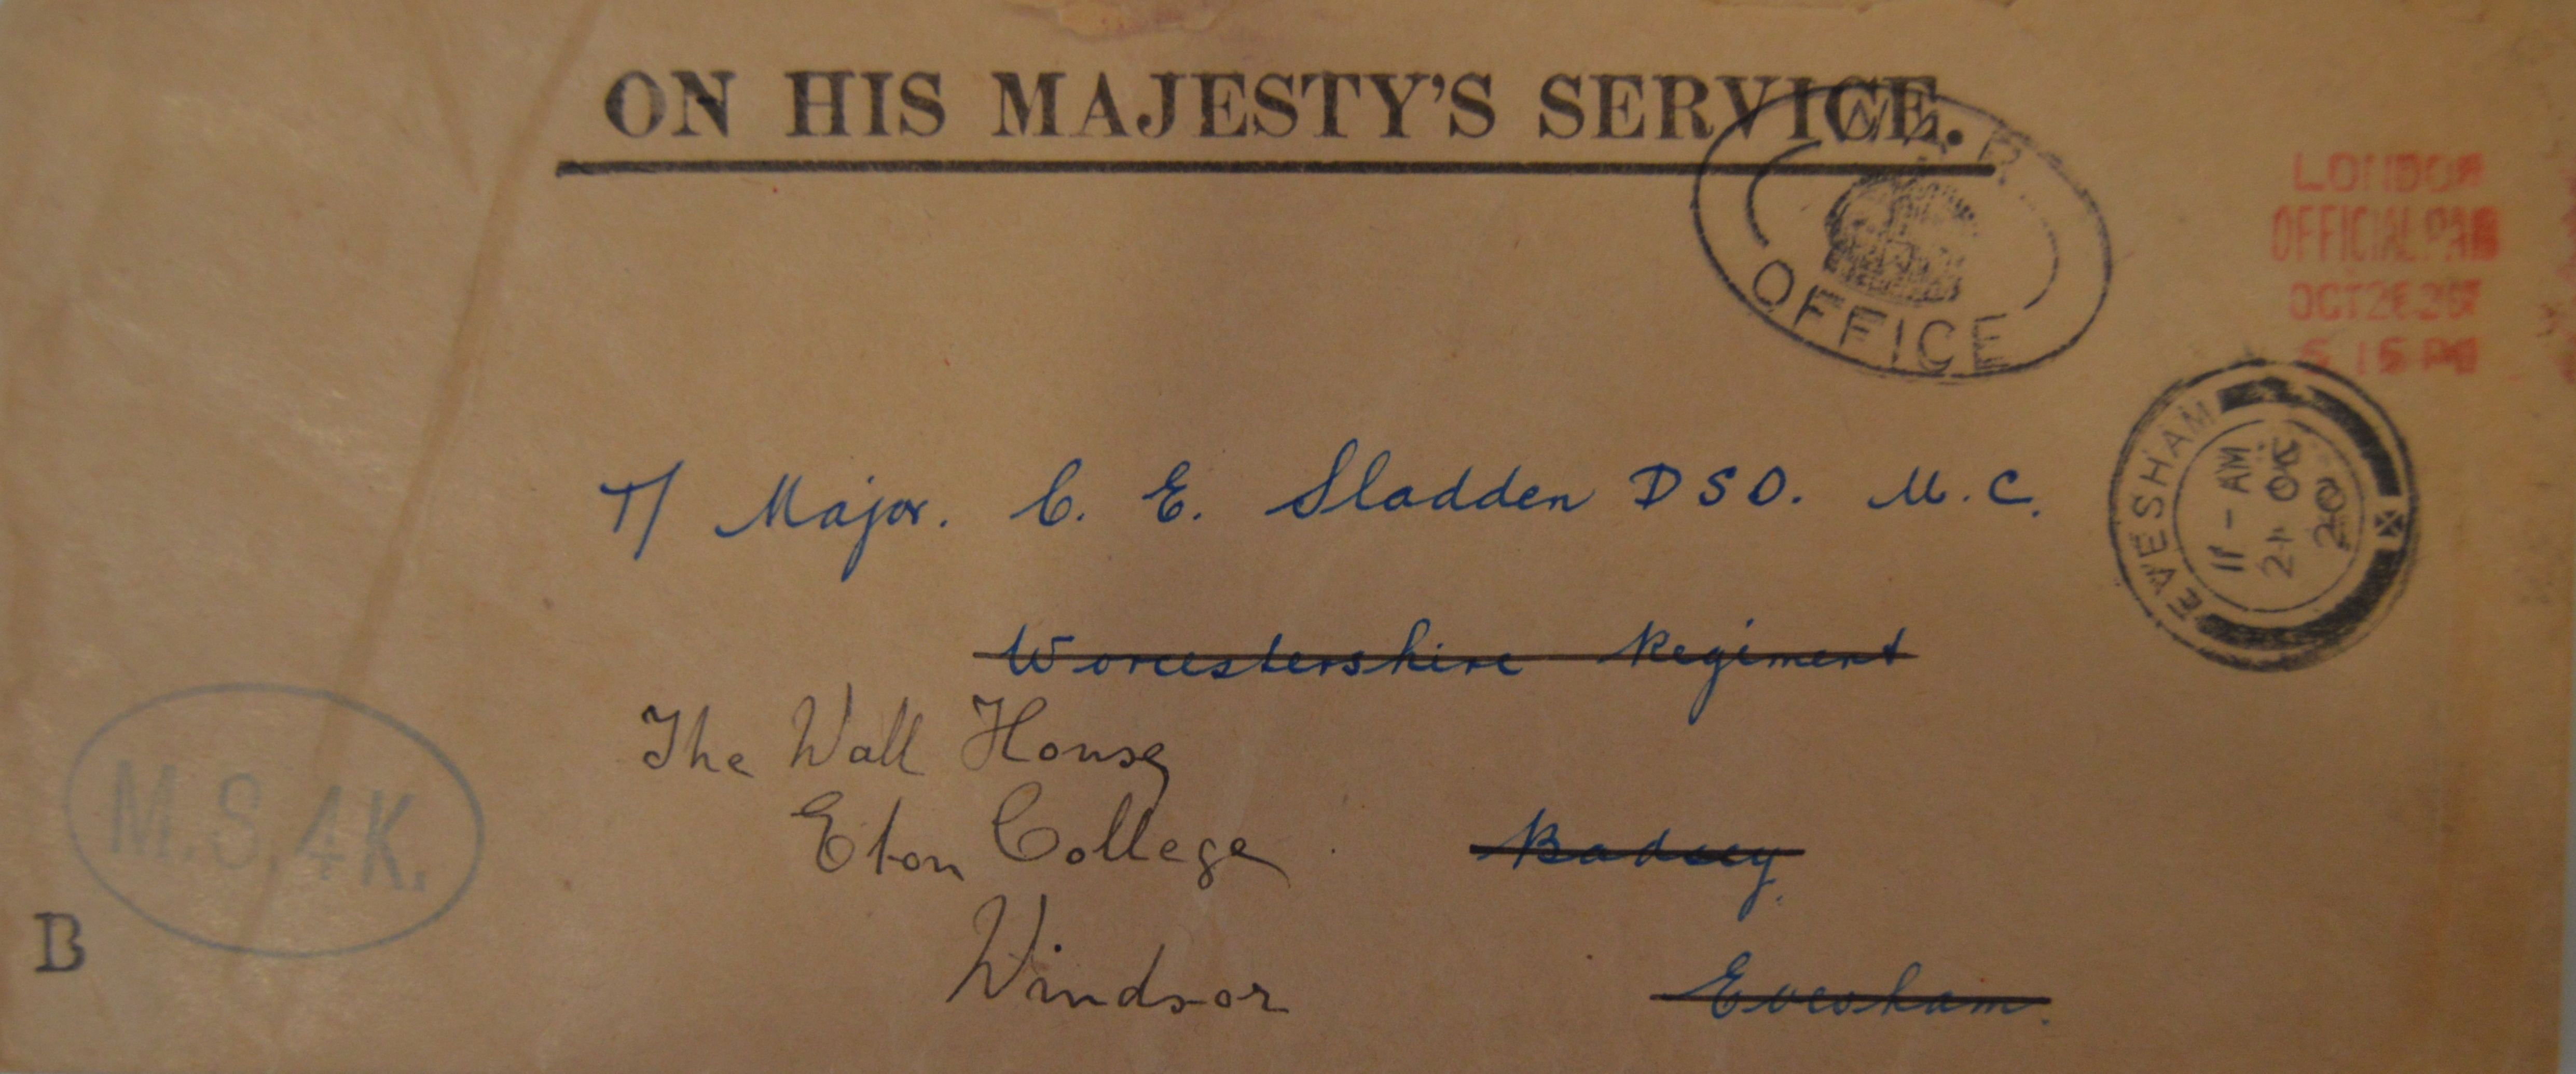 ON HIS MAJESTY'S SERVICE.
WAR
OFFICE
LONDON
OFFICIAL PAID
OCT 20
5 15 PM
EVESHAM
11 - AM
21 OC
20
T/ Major. C. E. Sladden DSO. M.C.
Worcestershire Regiment
The Wall House
Eton College
Badsey
Windsor
Evesham.
M.S.4K.
B